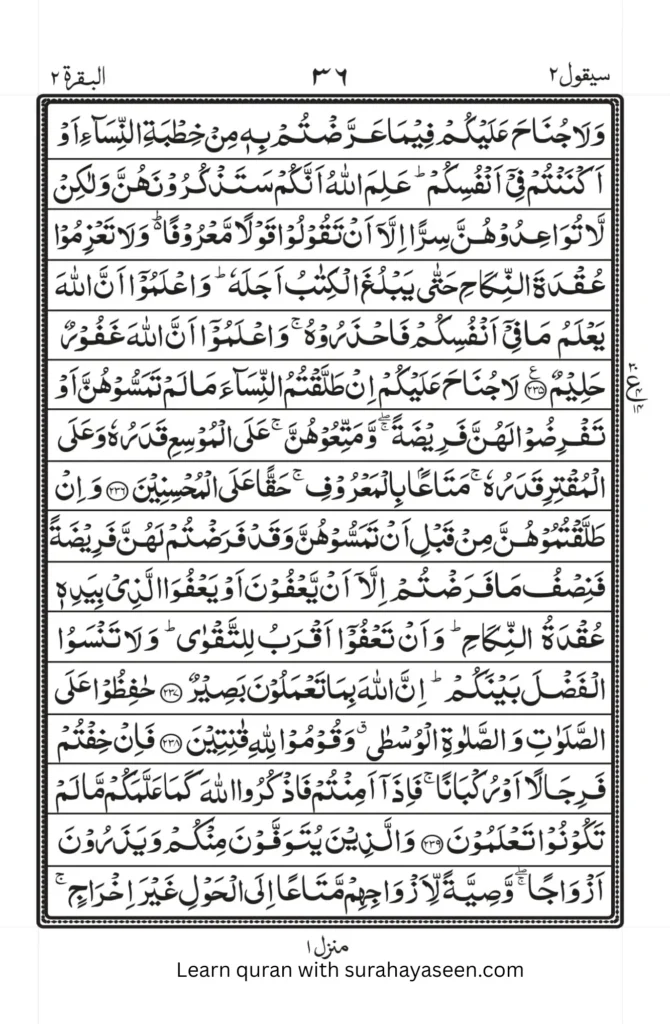 سيقول ٢ ٣٦ البقرة ٢
وَلَا جُنَاحَ عَلَيْكُمْ فِيْمَا عَرَّضْتُمْ بِهٖ مِنْ خِطْبَةِ النِّسَآءِ اَوْ
اَكْنَنْتُمْ فِيْۤ اَنْفُسِكُمْ ؕ عَلِمَ اللّٰهُ اَنَّكُمْ سَتَذْكُرُوْنَهُنَّ وَلٰكِنْ
لَّا تُوَاعِدُوْهُنَّ سِرًّا اِلَّاۤ اَنْ تَقُوْلُوْا قَوْلًا مَّعْرُوْفًا ؕ۬ وَلَا تَعْزِمُوْا
عُقْدَةَ النِّكَاحِ حَتّٰى يَبْلُغَ الْكِتٰبُ اَجَلَهٗ ؕ وَاعْلَمُوْۤا اَنَّ اللّٰهَ
يَعْلَمُ مَا فِيْۤ اَنْفُسِكُمْ فَاحْذَرُوْهُ ۚ وَاعْلَمُوْۤا اَنَّ اللّٰهَ غَفُوْرٌ
حَلِيْمٌ ۠ ﴿٢٣٥﴾ لَا جُنَاحَ عَلَيْكُمْ اِنْ طَلَّقْتُمُ النِّسَآءَ مَا لَمْ تَمَسُّوْهُنَّ اَوْ
٣٠
ع
٤
١٤
تَفْرِضُوْا لَهُنَّ فَرِيْضَةً ۖۚ وَّمَتِّعُوْهُنَّ ۚ عَلَى الْمُوْسِعِ قَدَرُهٗ وَعَلَى
الْمُقْتِرِ قَدَرُهٗ ۚ مَتَاعًۢا بِالْمَعْرُوْفِ ۚ حَقًّا عَلَى الْمُحْسِنِيْنَ ﴿٢٣٦﴾ وَاِنْ
طَلَّقْتُمُوْهُنَّ مِنْ قَبْلِ اَنْ تَمَسُّوْهُنَّ وَقَدْ فَرَضْتُمْ لَهُنَّ فَرِيْضَةً
فَنِصْفُ مَا فَرَضْتُمْ اِلَّاۤ اَنْ يَّعْفُوْنَ اَوْ يَعْفُوَا الَّذِيْ بِيَدِهٖ
عُقْدَةُ النِّكَاحِ ؕ وَاَنْ تَعْفُوْۤا اَقْرَبُ لِلتَّقْوٰى ؕ وَلَا تَنْسَوُا
الْفَضْلَ بَيْنَكُمْ ؕ اِنَّ اللّٰهَ بِمَا تَعْمَلُوْنَ بَصِيْرٌ ﴿٢٣٧﴾ حٰفِظُوْا عَلَى
الصَّلَوٰتِ وَالصَّلٰوةِ الْوُسْطٰى ۗ وَقُوْمُوْا لِلّٰهِ قٰنِتِيْنَ ﴿٢٣٨﴾ فَاِنْ خِفْتُمْ
فَرِجَالًا اَوْ رُكْبَانًا ۚ فَاِذَاۤ اَمِنْتُمْ فَاذْكُرُوا اللّٰهَ كَمَا عَلَّمَكُمْ مَّا لَمْ
تَكُوْنُوْا تَعْلَمُوْنَ ﴿٢٣٩﴾ وَالَّذِيْنَ يُتَوَفَّوْنَ مِنْكُمْ وَيَذَرُوْنَ
اَزْوَاجًا ۖۚ وَّصِيَّةً لِّاَزْوَاجِهِمْ مَّتَاعًا اِلَى الْحَوْلِ غَيْرَ اِخْرَاجٍ ۚ
منزل ١
Learn quran with surahayaseen.com